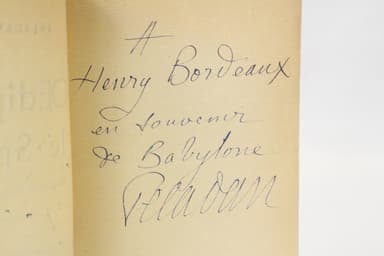 A
Henry Bordeaux
en souvenir
de Babylone
Peladan